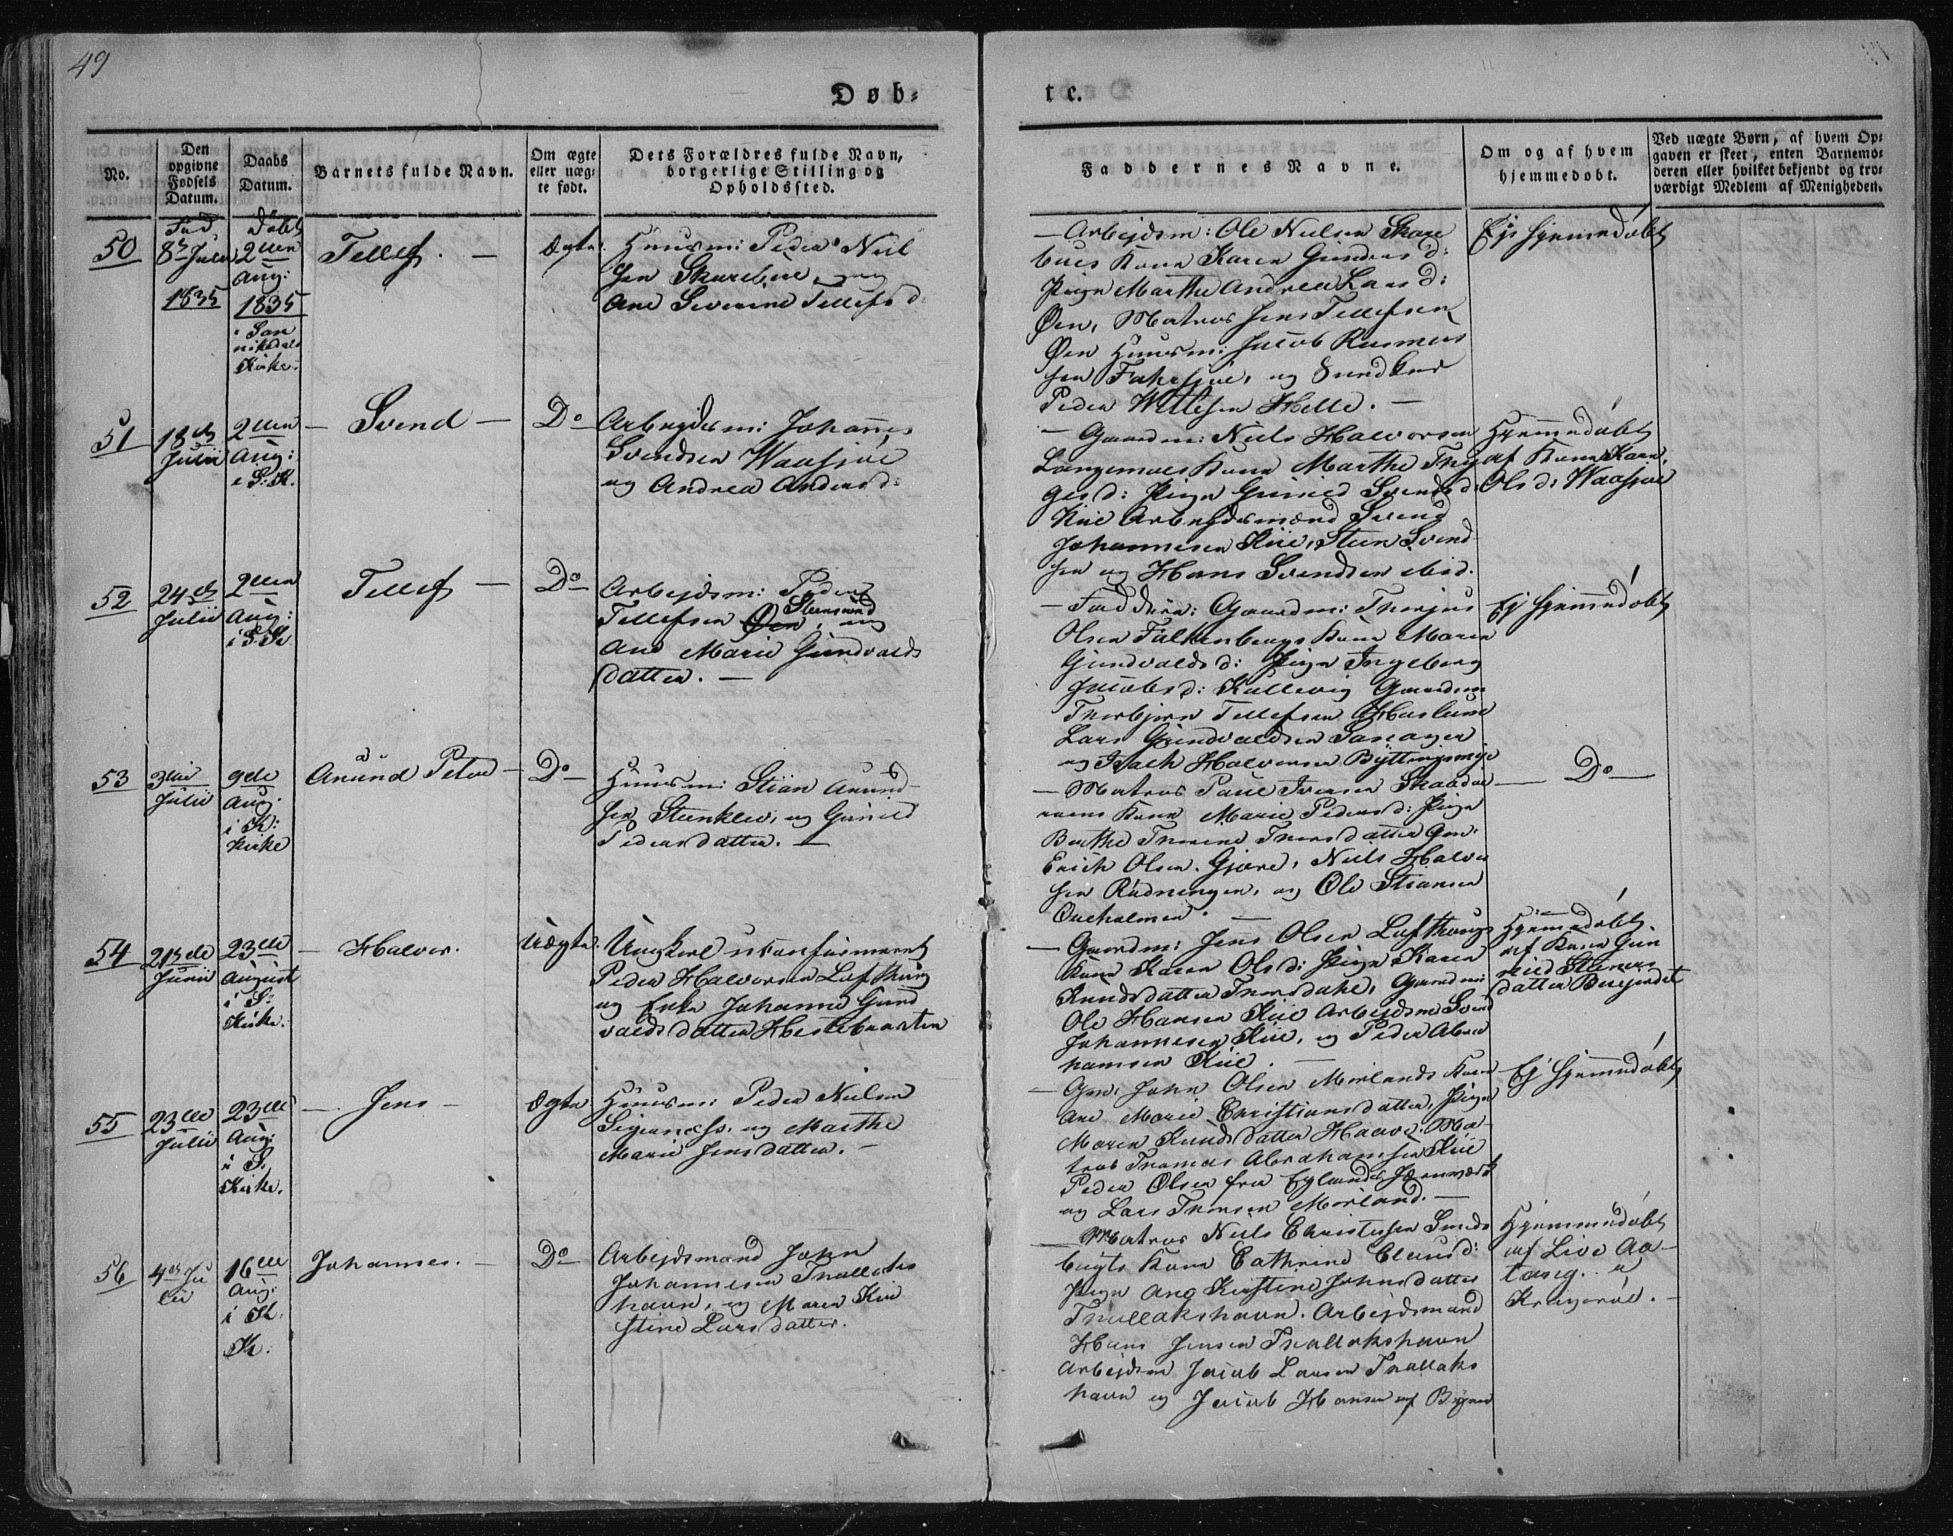 49
Døb-
te.
No.
Den opgivne Fødsels Datum.
Daabs Datum.
Barnets fulde Navn.
Om ægte eller uæg- te født.
Dets Forældres fulde Navn, borgerlige Stilling og Opholdssted.
Faddernes Navne.
Om og af hvem hjemmedøbt.
Ved uægte Børn, af hvem Op- gaven er skeet, enten Barnemo- deren eller hvilket bekjendt og tro- værdigt Medlem af Menigheden.
50
8de Julii
1835
Døbt
2den
Aug:
1835
i San
nikedals
Kirke.
Tellef. —
Ægte.
Huusm: Peder Niel
sen
og
Ane Severine Tellefsd:
— Arbejdsm: Ole Nielsen Skare
bues Kone Karen Gunders d:
Pige Marthe Andrea Lars d:
Øen, Matros Jens Tellefsen
Øen Huusm: Jacob Rasmus
sen og
Peder Helle. —
Ej hjemmedøbt
51
18de
Julii
2den
Aug:
i S: K.
— Svend —
Do
Arbejdsm: Johannes
Svendsen Waasjøe
og Andrea Anders d:
— Gaardm: Niels Halvorsen
Langemyrs Kone Marthe Thor
ges d: Pige Gunild Svends d:
Kiil Arbejdsmænd Svend
Johannesen Kiil, Steen Svend
sen og Hans Svendsen ibid.
Hjemmedøbt
af Kone Karen
Ols d: Waasjøe
52
24de
Julii
2den
Aug:
i S. K.
Tellef —
Do
Arbejdsm: Peder
Steensund
Tellefsen Øen, og
Ane Marie Gundvalds
datter. —
— Faddere: Gaardm: Thorjus
Olsen Falkenbergs Kone Maren
Gundvalds d: Pige Ingeborg
Jacobs d: Kallevig Gaardm:
Thorbjørn Tellefsen Haslum
Lars Gundvaldsen
og Isach Halvorsen
Ej hjemmedøbt
53
3die
Julii
9de
Aug.
i K:
Kirke
Anund Peter —
Do
Huusm: Stian Anund
sen Steenklev, og Gunild
Peders datter. —
— Matros Poul Iversen
Kone Marie Peders d: Pige
Berthe Thorine Thors datter
Erich Olsen Gjære, Niels Halvor
sen Rødningen, og Ole Stiansen
— Do —
54
21de
Junii
23de
August
i S:
Kirke.
— Halvor.
Uægte.
Ungkarl ukonfirmeret
Peder Halvorsen Lofthaug
og Enke Johanne Gund
valds datter
— Gaardm: Jens Olsen Lofthaugs
Kone Karen Ols d: Pige Karen
Knudsdatter Thorsdahl, Gaardm:
Ole Hansen Kiil Arbejdsm Svend
Johannesen Kiil, og Peder Abra
hamsen Kiil. —
Hjemmedøbt
af Kone Gun
nild Steners
datter
55
23de
Julii
23de
Aug:
i S.
Kirke.
— Jens —
Ægte
Huusm: Peder Nielsen
og Marthe
Marie Jens datter. —
— Gm: John Olsen Mørlands Kone
Ane Marie Christians datter, Pige
Maren Knuds datter Haave. Ma-
tros Thomas Abrahamsen Kiil
Peder Olsen fra Eglands Jernværk
og Lars Thorsen Mørland. —
— Ej hjemmedøbt
56
4de Ju
lii
16de
Aug:
i K.
K.
Johannes. —
Do
Arbejdsmand John
Johannesen Thallaks
havn, og Maren Kir
stine Lars datter.
— Matros Niels Christensen Smeds
bugts Kone Cathrine Claus d:
Pige Ane Kirstine Johns datter
Thallakshavn. Arbejdsmand
Hans Jensen Thallakshavn
Arbejdsm Jacob Larsen Thallaks
havn og Jacob Hansen af Byen
Hjemmedøbt
af Live Aa-
Kragerøe. —